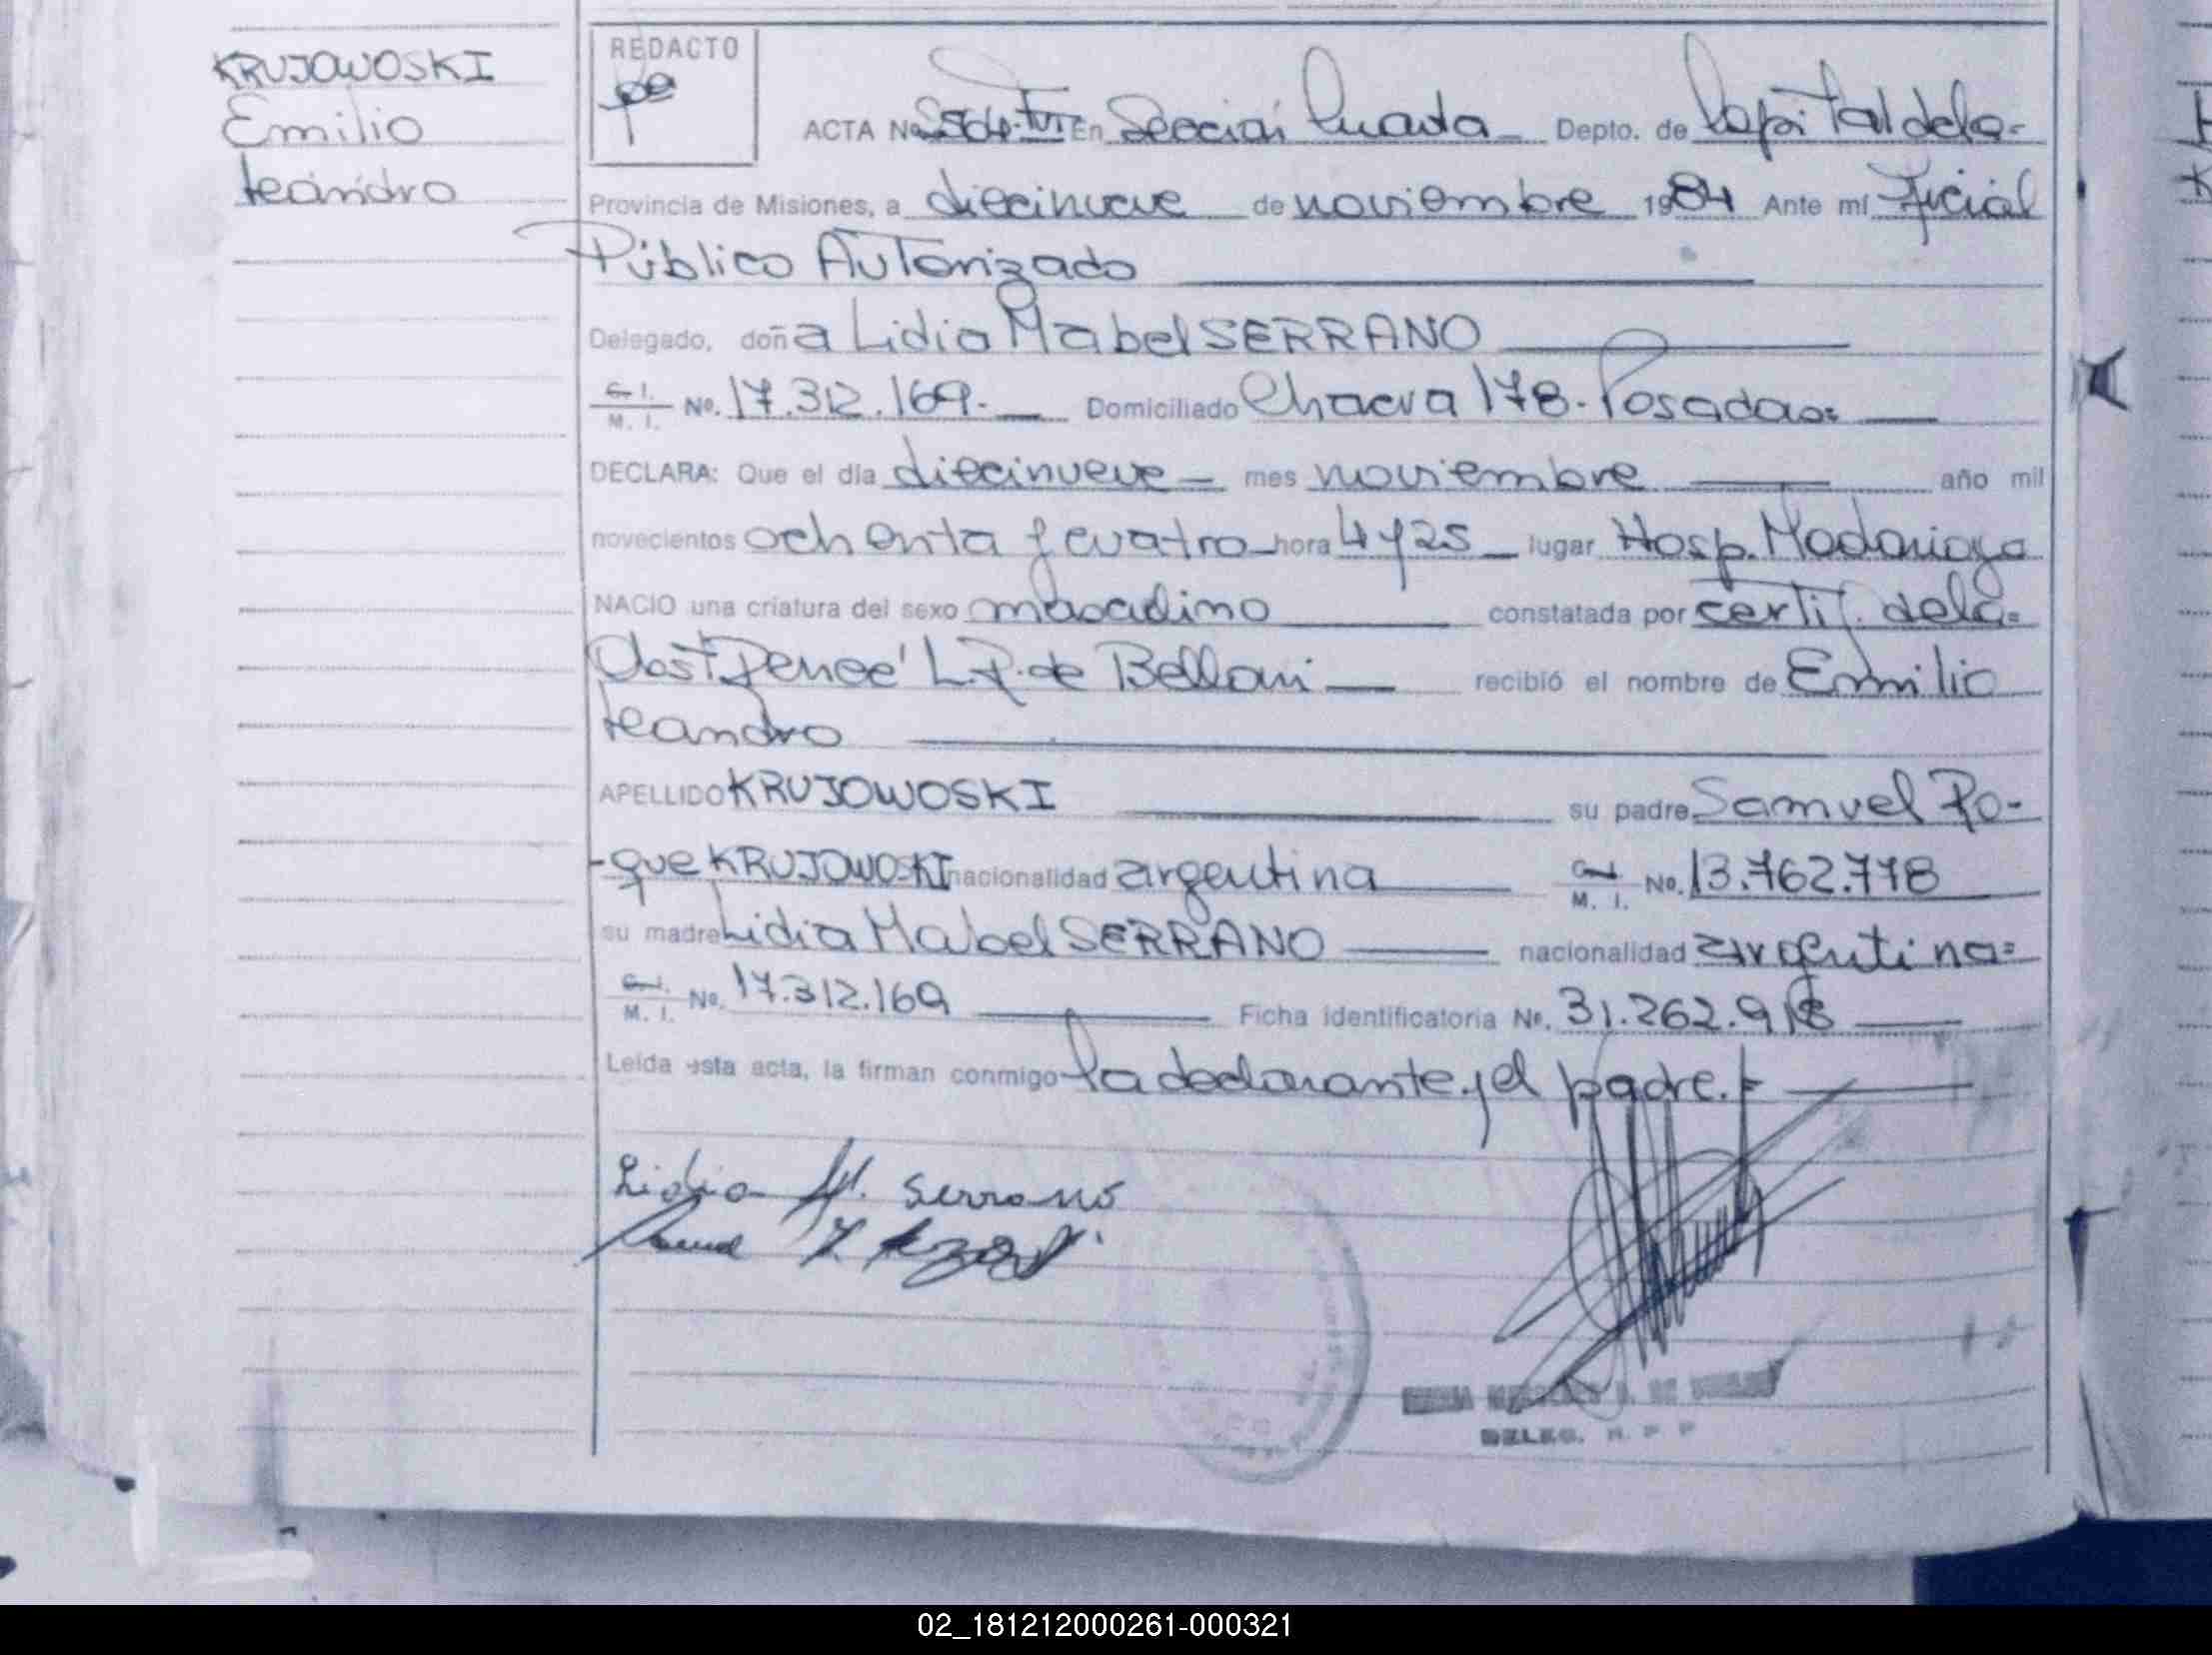 KRUJOWOSKI
Emilio
Leandro
REDACTO
ACTA No. En Sección Cuarta Depto. de Capital de la=
Provincia de Misiones, a diecinueve de noviembre 1984 Ante mí Oficial
Público Autorizado
Delegado, doña Lidia Mabel SERRANO
C. I.
M. I. No. 17.312.169. Domiciliado Chacra 178. Posadas=
DECLARA: Que el día diecinueve mes noviembre año mil
novecientos ochenta y cuatro hora 4 y 25 lugar Hosp. Madariaga
NACIO una criatura del sexo masculino constatada por certif. de la=
Obst L.R. de Belloni recibió el nombre de Emilio
Leandro
APELLIDO KRUJOWOSKI su padre Samuel Ro-
-que KRUJOWOSKI nacionalidad argentina C. I.
M. I. No. 13.762.778
su madre Lidia Mabel SERRANO nacionalidad argentina=
C. I.
M. I. No. 17.312.169 Ficha identificatoria No. 31.262.918
Leída esta acta, la firman conmigo la declarante y el padre.
Lidia M. Serrano
DELEG. R. P. P
02_181212000261-000321